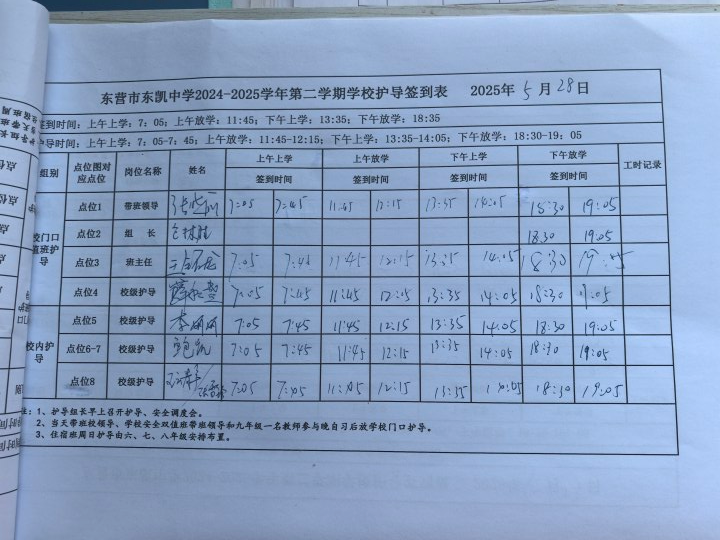 东营市东凯中学2024-2025学年第二学期学校护导签到表 2025年 5 月 28 日
签到时间：上午上学：7：05；上午放学：11:45；下午上学：13:35；下午放学：18:35
护导时间：上午上学：7：05-7；45；上午放学：11:45-12:15；下午上学：13:35-14:05；下午放学：18:30-19：05
组别 点位图对应点位 岗位名称 姓名 上午上学 上午放学 下午上学 下午放学 工时记录
签到时间 签到时间 签到时间 签到时间
校门口值班护导
点位1 带班领导 7:05 7:45 11:45 12:15 13:35 14:05 18:30 19:05
点位2 组 长 18:30 19:05
点位3 班主任 7:05 11:45 12:15 14:05 18:30
点位4 校级护导 7:05 7:45 11:45 12:05 13:35 14:05 18:30
校内护导
点位5 校级护导 李丽丽 7:05 7:45 11:45 12:15 13:35 14:05 18:30 19:05
点位6-7 校级护导 鲍凯 7:05 7:45 11:45 12:15 13:35 14:05 18:30 19:05
点位8 校级护导 7:05 11:05 12:15 13:35 18:30 19:05
注：1、护导组长早上召开护导、安全调度会。
2、当天带班校领导、学校安全双值班带班领导和九年级一名教师参与晚自习后放学校门口护导。
3、住宿班周日护导由六、七、八年级安排布置。